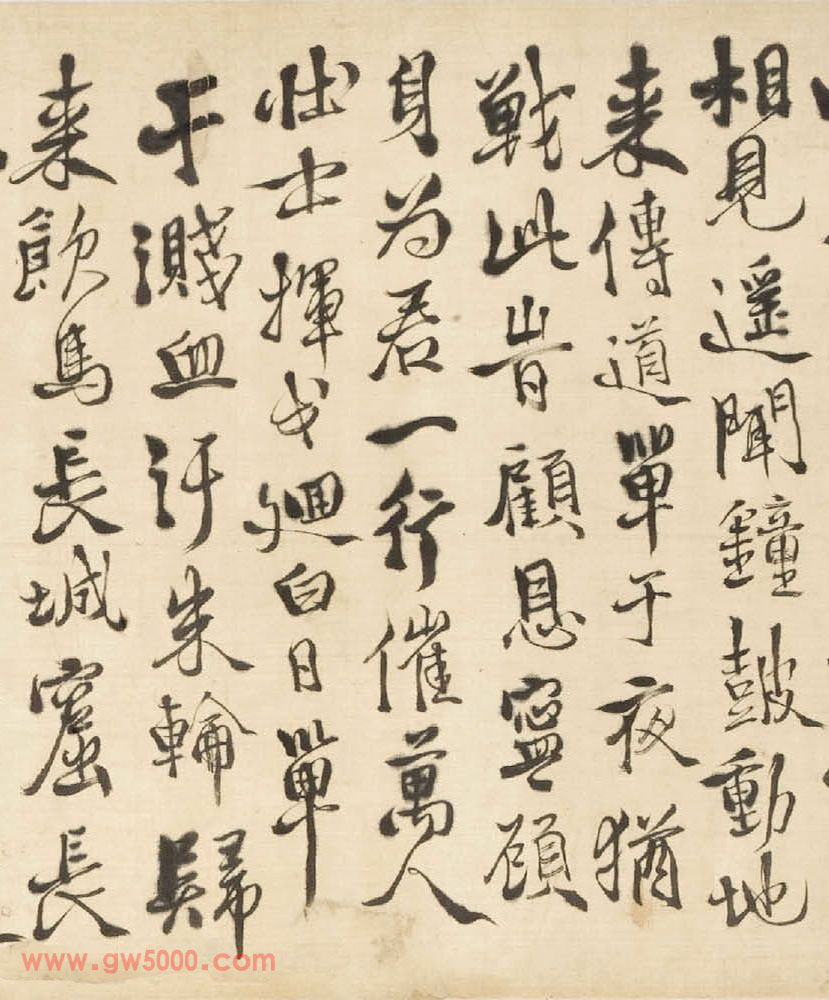 相見遥聞鐘鼓動地
来傳道單于夜猶
戰此旹顧恩寧顧
身为君一行催萬人
壮士揮戈廻白日單
于濺血汙朱輪歸
来飲馬長城窟長
www.gw5000.com